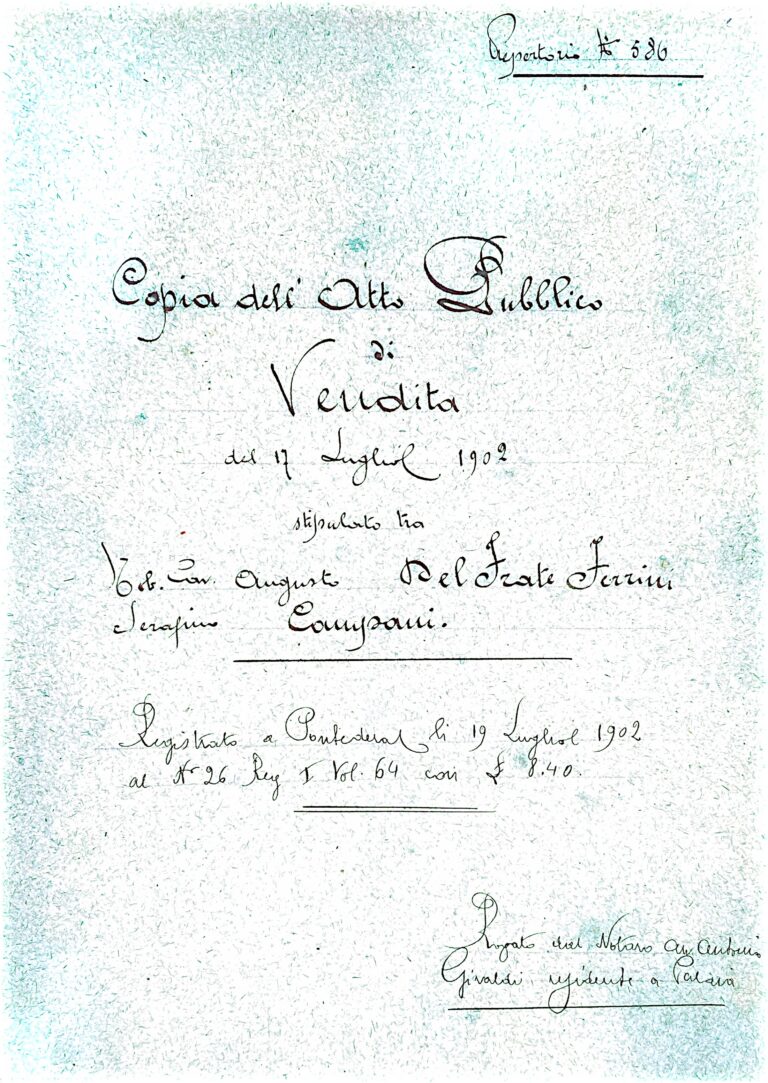 Repertorio N° 586
Copia dell' Atto Pubblico
di
Vendita
del 17 Luglio 1902
stipulato tra
Nob. Cav. Augusto Del Frate Ferrini
Serafino Campani.
Registrato a Pontedera li 19 Luglio 1902
al N° 26 Reg I Vol. 64 con £ 8.40.
Rogato dal Notaro Antonio
Givaldi, residente a Palaia